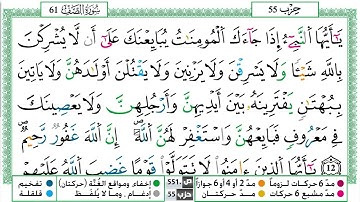 حزب 55
سُورَةُ الصَّفِّ 61
يَٰٓأَيُّهَا اَ۬لنَّبِےٓءُ اِ۪ذَا جَآءَكَ اَ۬لْمُومِنَٰتُ يُبَايِعْنَكَ عَلَىٰٓ أَن لَّا يُشْرِكْنَ
بِاللَّهِ شَيْـٔاً وَلَا يَسْرِقْنَ وَلَا يَزْنِينَ وَلَا يَقْتُلْنَ أَوْلَٰدَهُنَّ وَلَا يَاتِينَ
بِبُهْتَٰنٍ يَفْتَرِينَهُۥ بَيْنَ أَيْدِيهِنَّ وَأَرْجُلِهِنَّ وَلَا يَعْصِينَكَ
فِے مَعْرُوفٍ فَبَايِعْهُنَّ وَاسْتَغْفِرْ لَهُنَّ اَ۬للَّهَ إِنَّ اَ۬للَّهَ غَفُورٌ رَّحِيمٌ
12 يَٰٓأَيُّهَا اَ۬لذِينَ ءَامَنُواْ لَا تَتَوَلَّوْاْ قَوْماً غَضِبَ اَ۬للَّهُ عَلَيْهِمْ
مدّ 6 حركات لزوماً مدّ 2 أو 4 أو 6 جوازاً ص 551 إخفاء، ومواقع الغُنَّة (حركتان) تفخيم
مدّ مشبع 6 حركات مدّ حركتان حزب 55 إدغام، وما لا يُلفَظ قلقلة